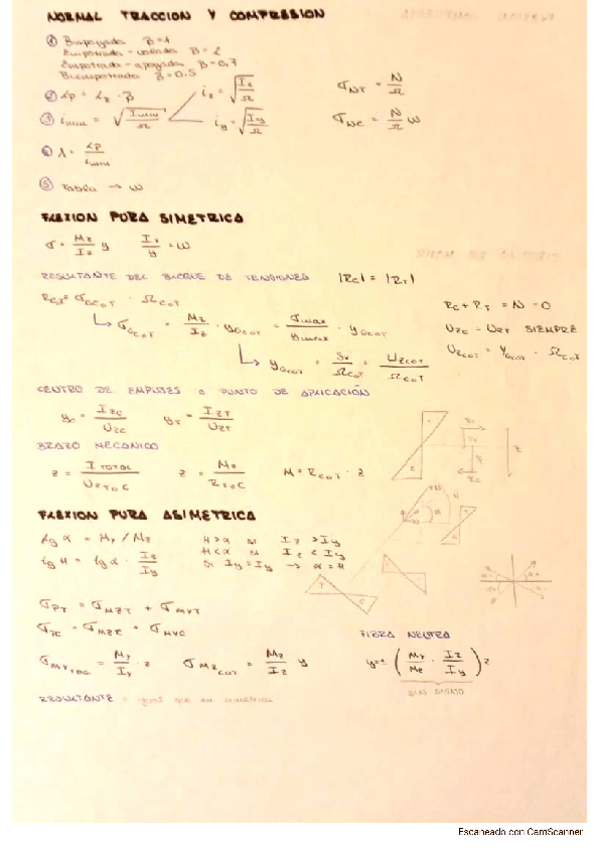 NORMAL TRACCION Y COMPRESION
① Biapoyada β=1
Empotrada - volada β=2
Empotrada - apoyada β=0,7
Biempotrada β=0,5
② Lp = Lz · β
③ imin = √(Imin/Ω) iz = √(Iz/Ω) iy = √(Iy/Ω)
σNT = N/Ω
σNC = N/Ω ω
④ λ = Lp/imin
⑤ Tabla → ω
FLEXION PURA SIMETRICA
σ = Mz/Iz y Iz/y = W
RESULTANTE DEL BLOQUE DE TENSIONES |Rc| = |RT|
σGCoT = Mz/Iz · yGCoT = σmax/ymax · yGCoT
yGCoT = = UzCoT/ΩCoT
Rc + RT = N = 0
UzC = UzT SIEMPRE
UzCoT = yGCoT · ΩCoT
CENTRO DE EMPUJES o PUNTO DE APLICACIÓN
yC = IzC/UzC yT = IzT/UzT
BRAZO MECANICO
z = I TOTAL/UzToC z = Mz/RToC M = RCoT · z
FLEXION PURA ASIMETRICA
tg α = My / Mz
H > α si Iz > Iy
tg H = tg α · Iz/Iy
H < α si Iz < Iy
Si Iy = Iz → α = H
σPT = σMzT + σMyT
σPC = σMzC + σMyC
FIBRA NEUTRA
σMyToC = My/Iy · z σMzCoT = Mz/Iz y
y = (My/Mz · Iz/Iy) z
SIN SIGNO
RESULTANTE = igual que en simetrica
Escaneado con CamScanner